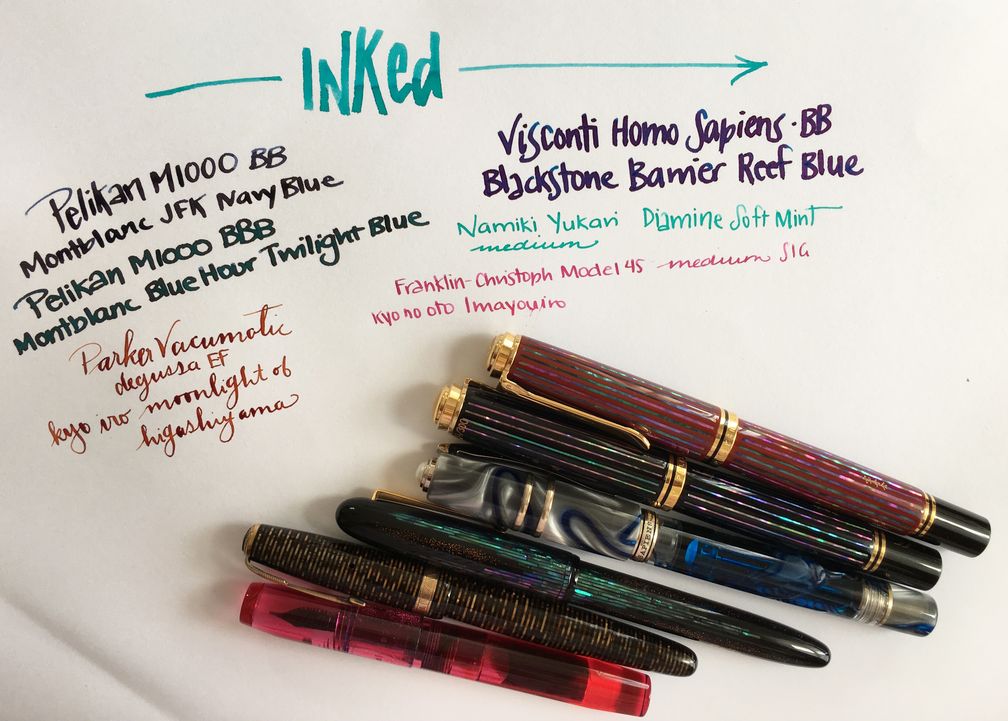 INKed
Pelikan M1000 BB
Montblanc JFK Navy Blue
Pelikan M1000 BBB
Montblanc Blue Hour Twilight Blue
Parker Vacumatic
degussa EF
kyo iro moonlight of
higashiyama
Visconti Homo Sapiens · BB
Blackstone Barrier Reef Blue
Namiki Yukari Diamine Soft Mint
medium
Franklin-Christoph Model 45 medium SIG
kyo no oto Imayouiro